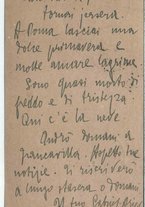 Tornai jersera.
A Roma lasciai una
dolce primavera e
molte amare lagrime.
Sono quasi morto di
freddo e di tristezza.
Qui c'è la neve.
Andrò domani a
Francavilla. Aspetto tue
notizie. Ti riscriverò
a lungo stasera o domani.
Il tuo Gabriele